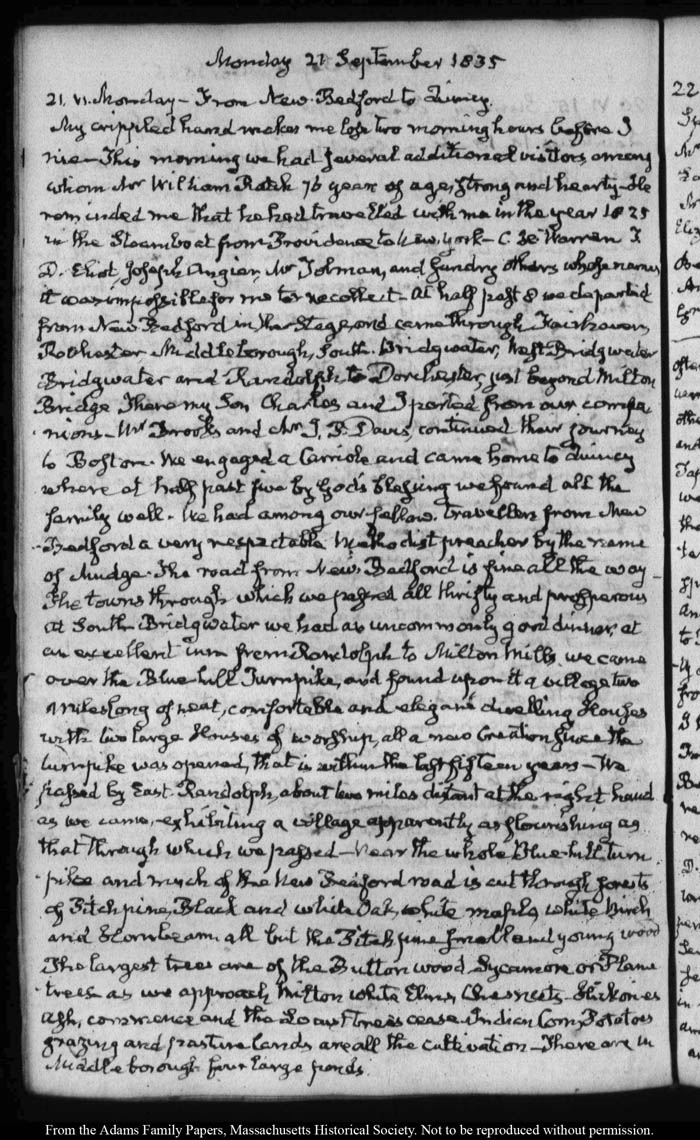 Monday 21 September 1835
21. VI. Monday — From New-Bedford to Quincy.
My crippled hand makes me lose two morning hours before I
rise — This morning we had several additional visitors among
whom Mr William Rotch 76 years of age, strong and hearty — He
reminded me that he had travelled with me in the year 1825
in the Steamboat from Providence to New-York — C. H. Warren T.
D. Eliot, Joseph Angier, Mr Tolman, and sundry others whose names
it was impossible for me to recollect — At half past 8 we departed
from New Bedford in the Stage, and came through Fairhaven,
Rochester Middleborough, South-Bridgwater, West-Bridgwater
Bridgwater and Randolph to Dorchester, just beyond Milton
Bridge. There my Son Charles and I parted from our compa
nions — Mr Brooks and Mr I. P. Davis, continued their journey
to Boston. We engaged a Carriole and came home to Quincy
where at half past five by God's blessing we found all the
family well. We had among our fellow-travellers from New
Bedford a very respectable Methodist preacher by the name
of Mudge. The road from New-Bedford is fine all the way —
The towns through which we passed all thrifty and prosperous
At South-Bridgwater we had an uncommonly good dinner, at
an excellent Inn from Randolph to Milton Mills, we came
over the Blue-hill Turnpike, and found upon it a village two
miles long of neat, comfortable and elegant dwelling Houses
with two large Houses of worship, all a new Creation since the
turnpike was opened, that is within the last fifteen years — We
passed by East-Randolph, about two miles distant at the right hand
as we came, exhibiting a village apparently as flourishing as
that through which we passed — Near the whole Blue-hill turn
pike and much of the New Bedford road is cut through forests
of Pitch pine, Black and white Oak, white maple, white Birch
and Hornbeam all but the Pitch pine small and young wood
The largest trees are of the Button wood Sycamore or Plane
trees as we approach Milton white Elms, Chesnuts Hickories
ash, commence and the Locust trees cease. Indian Corn, Potatoes
grazing and pasture lands are all the cultivation — There are in
Middleborough four large ponds.
From the Adams Family Papers, Massachusetts Historical Society. Not to be reproduced without permission.